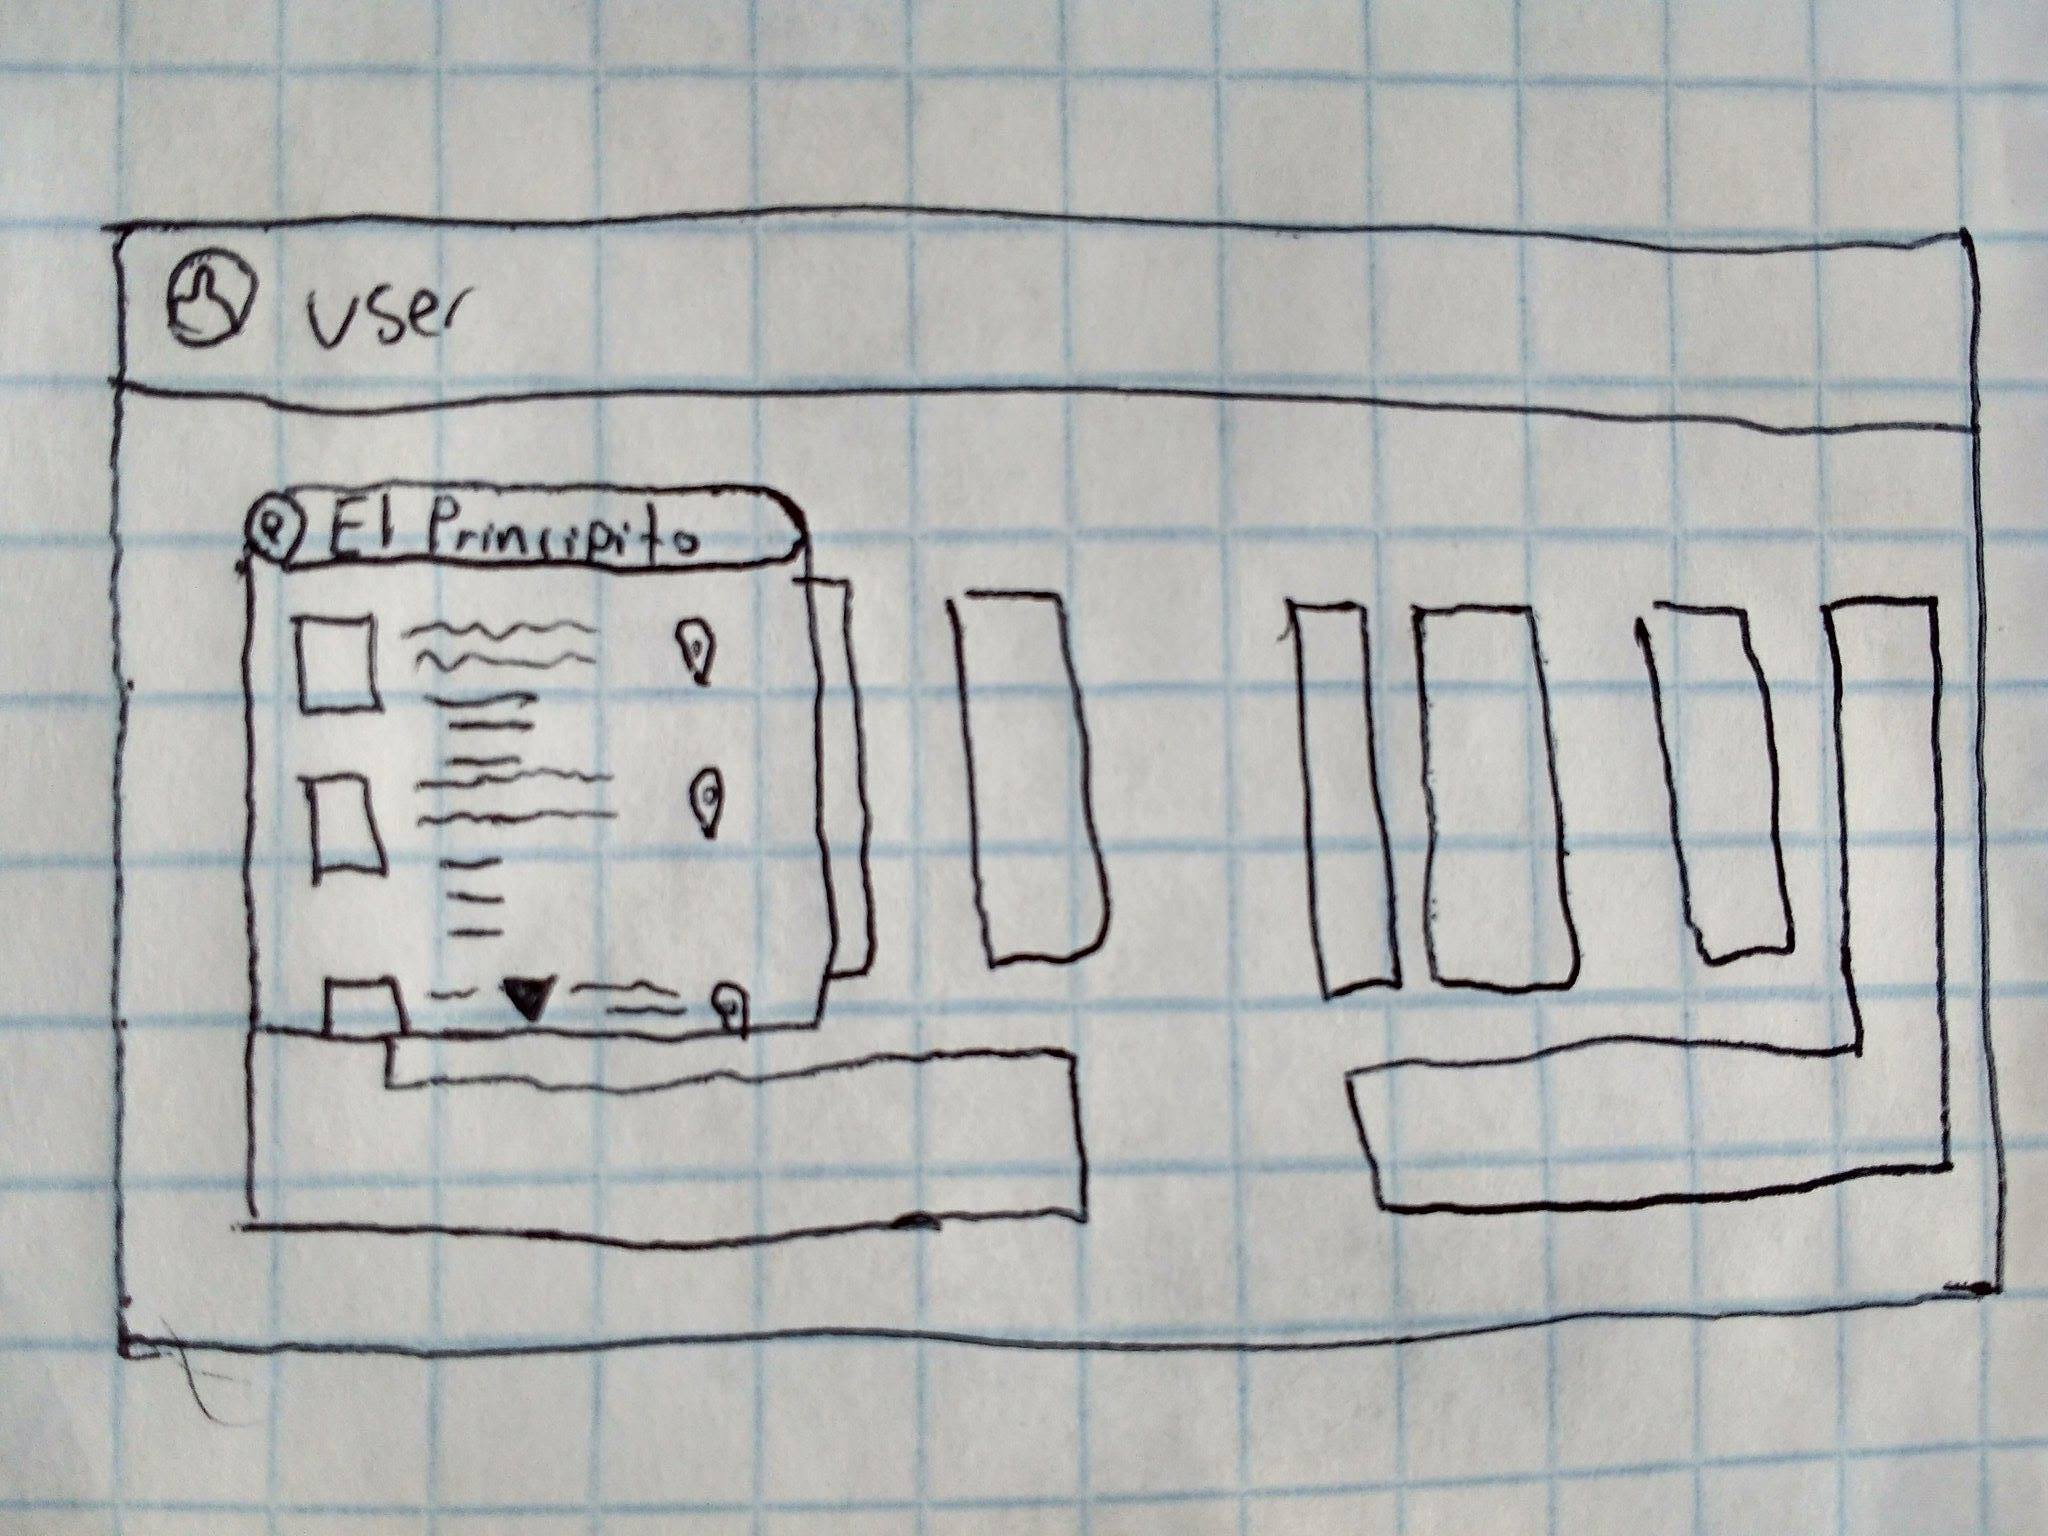 user
El Principito